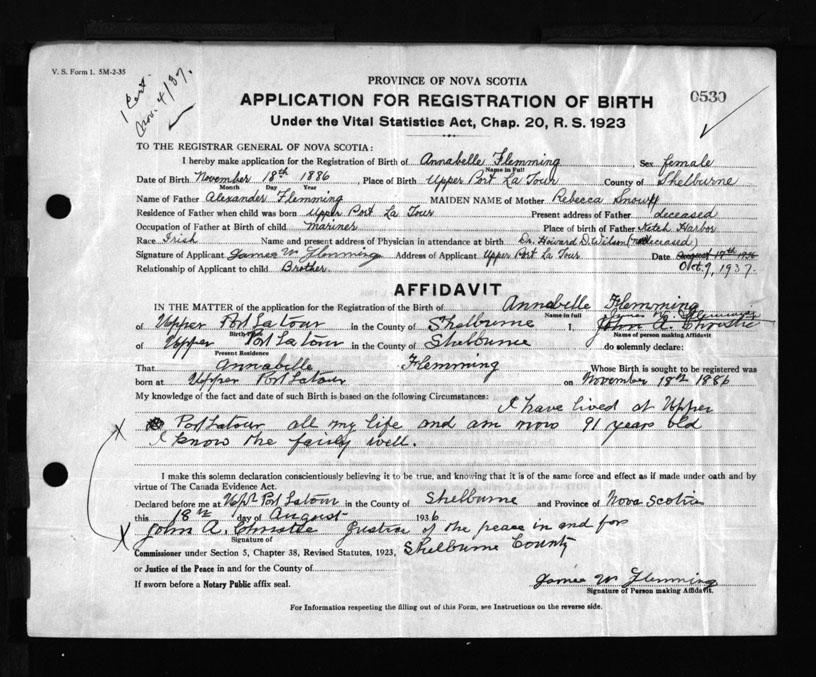 V. S. Form 1. 5M-2-35
1 Cert.
Nov. 4/37.
PROVINCE OF NOVA SCOTIA
0530
APPLICATION FOR REGISTRATION OF BIRTH
Under the Vital Statistics Act, Chap. 20, R. S. 1923
TO THE REGISTRAR GENERAL OF NOVA SCOTIA:
I hereby make application for the Registration of Birth of Annabelle Flemming, Sex female
Name in Full
Date of Birth November 18th 1886, Place of Birth Upper Port La Tour County of Shelburne
Month Day Year
Name of Father Alexander Flemming MAIDEN NAME of Mother Rebecca
Residence of Father when child was born Upper Port La Tour Present address of Father deceased
Occupation of Father at Birth of child Mariner Place of Birth of Father Ketch Harbor
Race Irish Name and present address of Physician in attendance at birth Dr. Howard D. Wilson (deceased)
Signature of Applicant James W Flemming Address of Applicant Upper Port La Tour Date August 18th 1936
Relationship of Applicant to child Brother. Oct. 9, 1937.
AFFIDAVIT
IN THE MATTER of the application for the Registration of the Birth of Annabelle Flemming
Name in full
of Upper Port Latour in the County of Shelburne I, John A. Christie
Birth Place
Name of person making Affidavit
of Upper Port Latour in the County of Shelburne do solemnly declare:
Present Residence
That Annabelle Flemming Whose Birth is sought to be registered was
born at Upper Port Latour on November 18th 1886
My knowledge of the fact and date of such Birth is based on the following Circumstances:
I have lived at Upper
Port Latour all my life and am now 91 years old
I know the faimly well.
I make this solemn declaration conscientiously believing it to be true, and knowing that it is of the same force and effect as if made under oath and by
virtue of The Canada Evidence Act.
Declared before me at Port Latour in the County of Shelburne and Province of Nova Scotia
this 18th day of August 1936
X John A. Christie Justice of the peace in and for
Signature of
Commissioner under Section 5, Chapter 38, Revised Statutes, 1923, Shelburne County
or Justice of the Peace in and for the County of
James W Flemming
If sworn before a Notary Public affix seal.
Signature of Person making Affidavit.
For Information respecting the filling out of this Form, see Instructions on the reverse side.